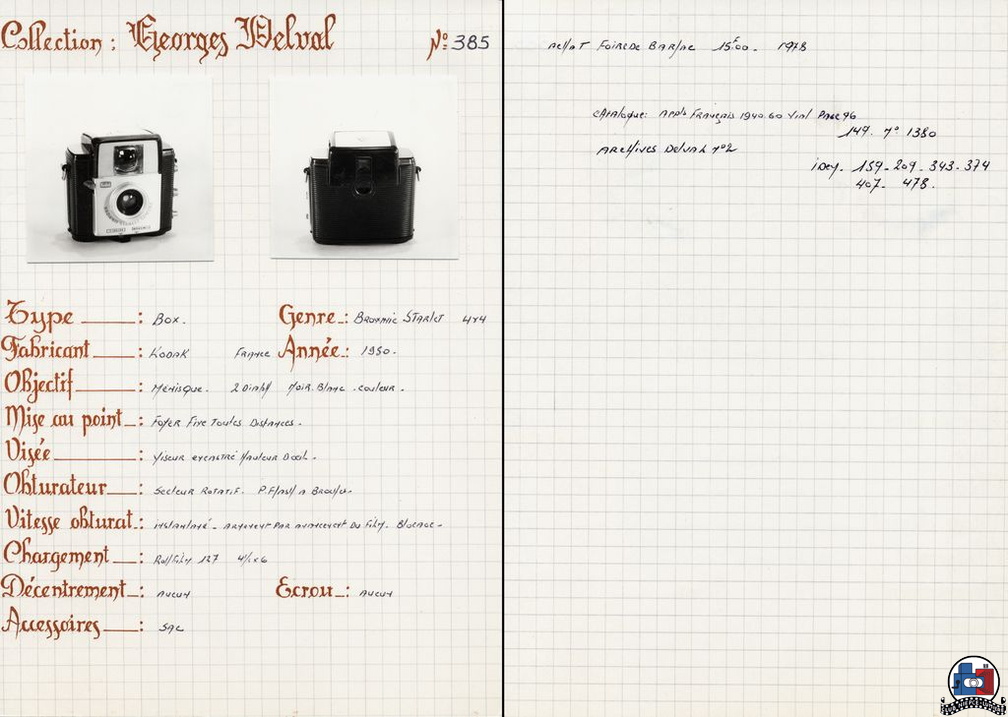 Collection : Georges Delval
Nº 385
Type : Box.
Genre : Brownie Starlet 4x4
Fabricant : Kodak France
Année : 1950.
Objectif : Ménisque. 2 Diaph Noir. Blanc. couleur.
Mise au point : Foyer Fixe Toutes Distances.
Visée : Viseur encastré Hauteur D'oeil.
Obturateur : Secteur Rotatif. P. Flash a
Vitesse obturat. : instantané - armement par avancement du film. Blocage -
Chargement : Rollfilm 127 4½x6
Décentrement : aucun
Ecrou : aucun
Accessoires : Sac
Achat Foire de Barjac 15F00. 1978
Catalogue: Français 1940.60 Vial Page 96
149. nº 1380
Archives Delval nº2
159 - 209 - 343 - 374
407 - 478.